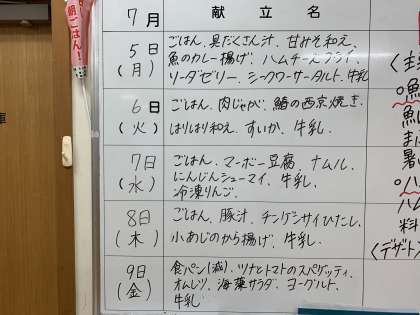 朝ごはん!
7月
献立名
5日
(月)
ごはん、具だくさん汁、甘みそ和え、
魚のカレー揚げ、ハムチーズフライ、
ソーダゼリー、シークワーサータルト、牛乳
6日
(火)
ごはん、肉じゃが、鰆の西京焼き、
はりはり和え、すいか、牛乳、
7日
(水)
ごはん、マーボー豆腐、ナムル、
にんじんシューマイ、牛乳、
冷凍りんご、
8日
(木)
ごはん、豚汁、チンゲンサイひたし、
小あじのから揚げ、牛乳、
9日
(金)
食パン(減)、ツナとトマトのスパゲッティ、
オムレツ、海藻サラダ、ヨーグルト、
牛乳
暑
料
<デザート>